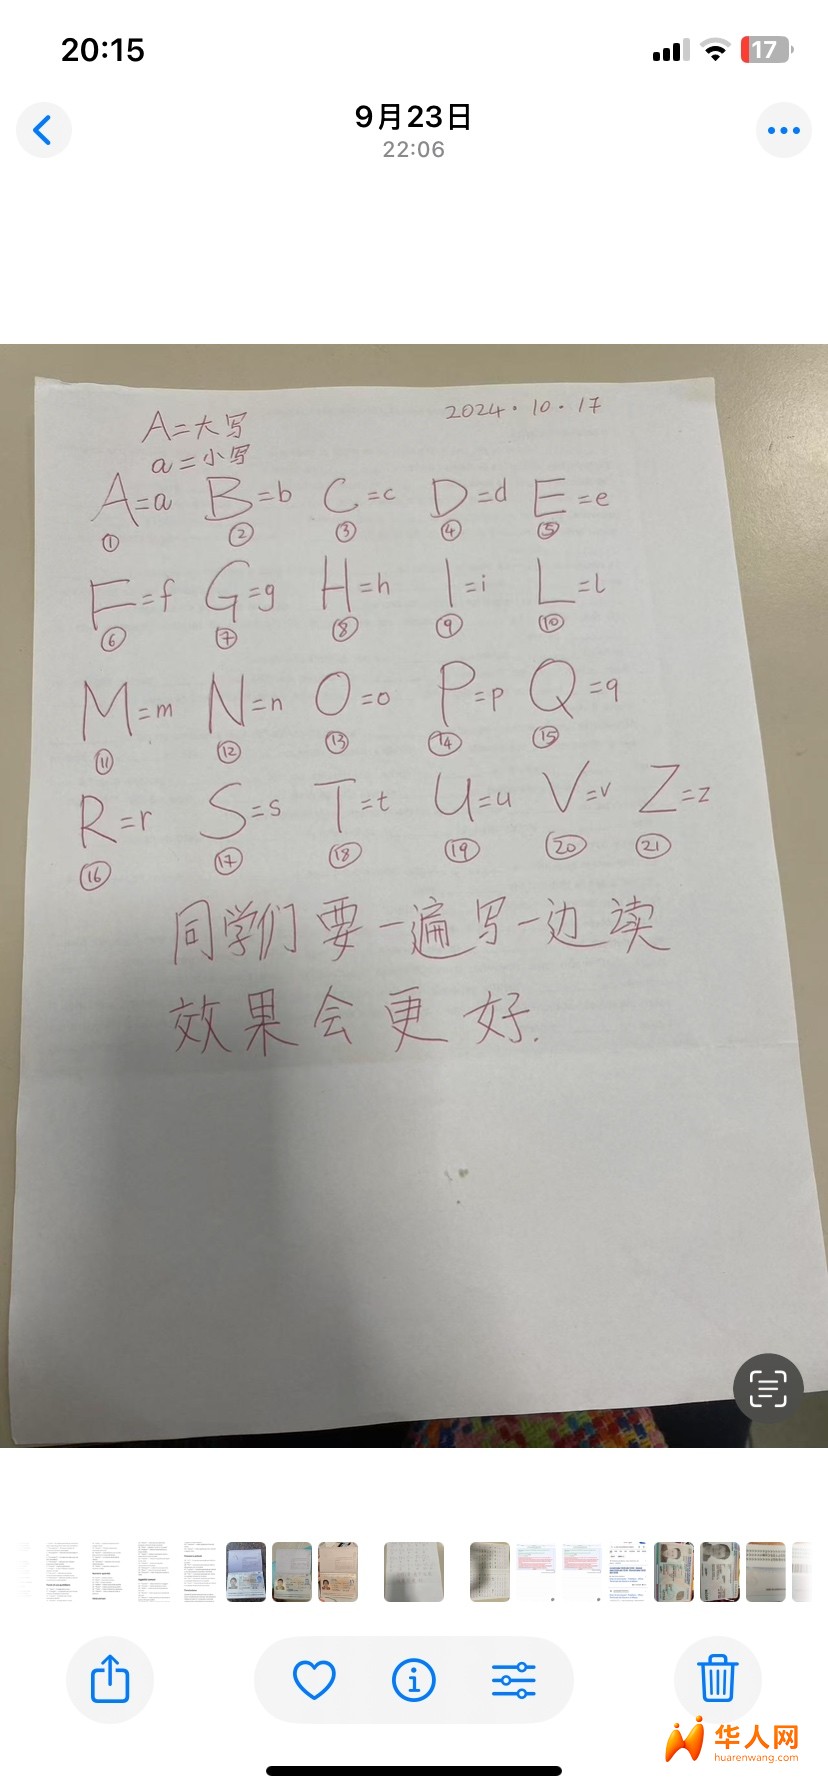 20:15
17
9月23日
22:06
2024·10·17
A=大写
a=小写
A=a B=b C=c D=d E=e
① ② ③ ④ ⑤
F=f G=g H=h I=i L=l
⑥ ⑦ ⑧ ⑨ ⑩
M=m N=n O=o P=p Q=q
⑪ ⑫ ⑬ ⑭ ⑮
R=r S=s T=t U=u V=v Z=z
⑯ ⑰ ⑱ ⑲ ⑳ ㉑
同学们要一遍写一边读
效果会更好.
华人网
huarenwang.com